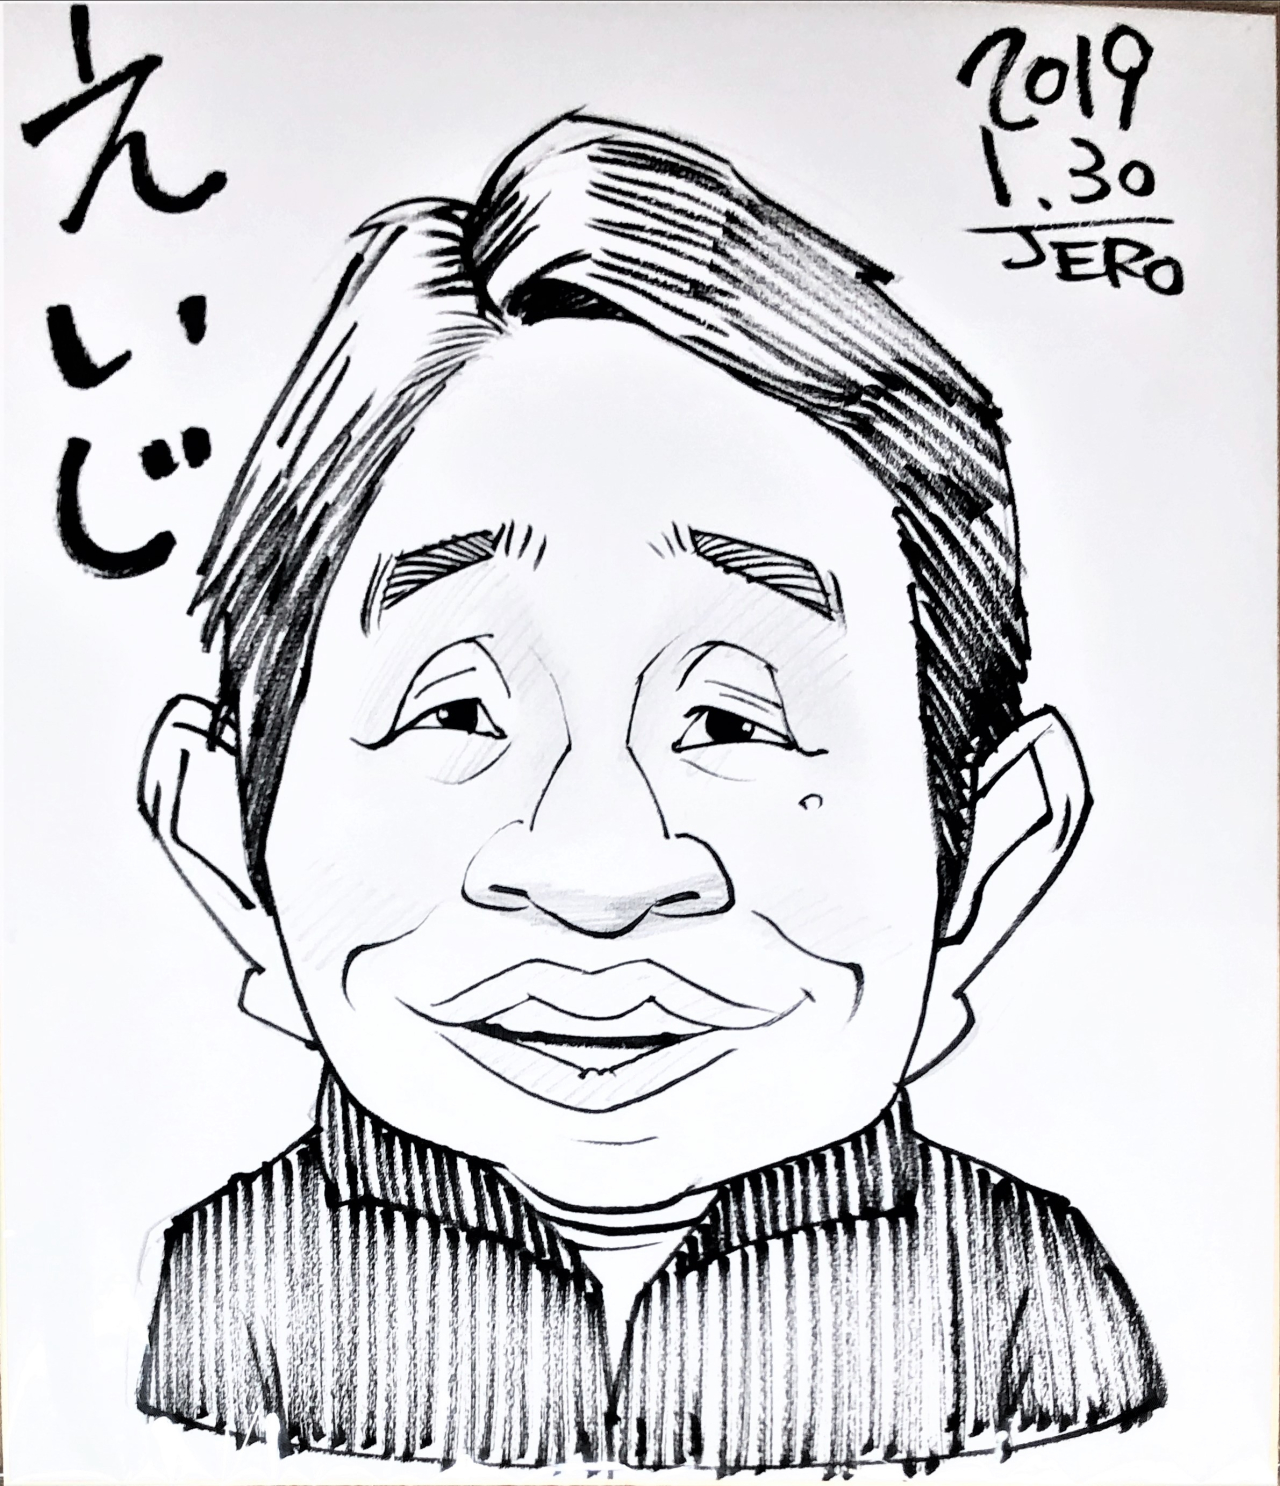 えいじ
2019
1.30
JERO